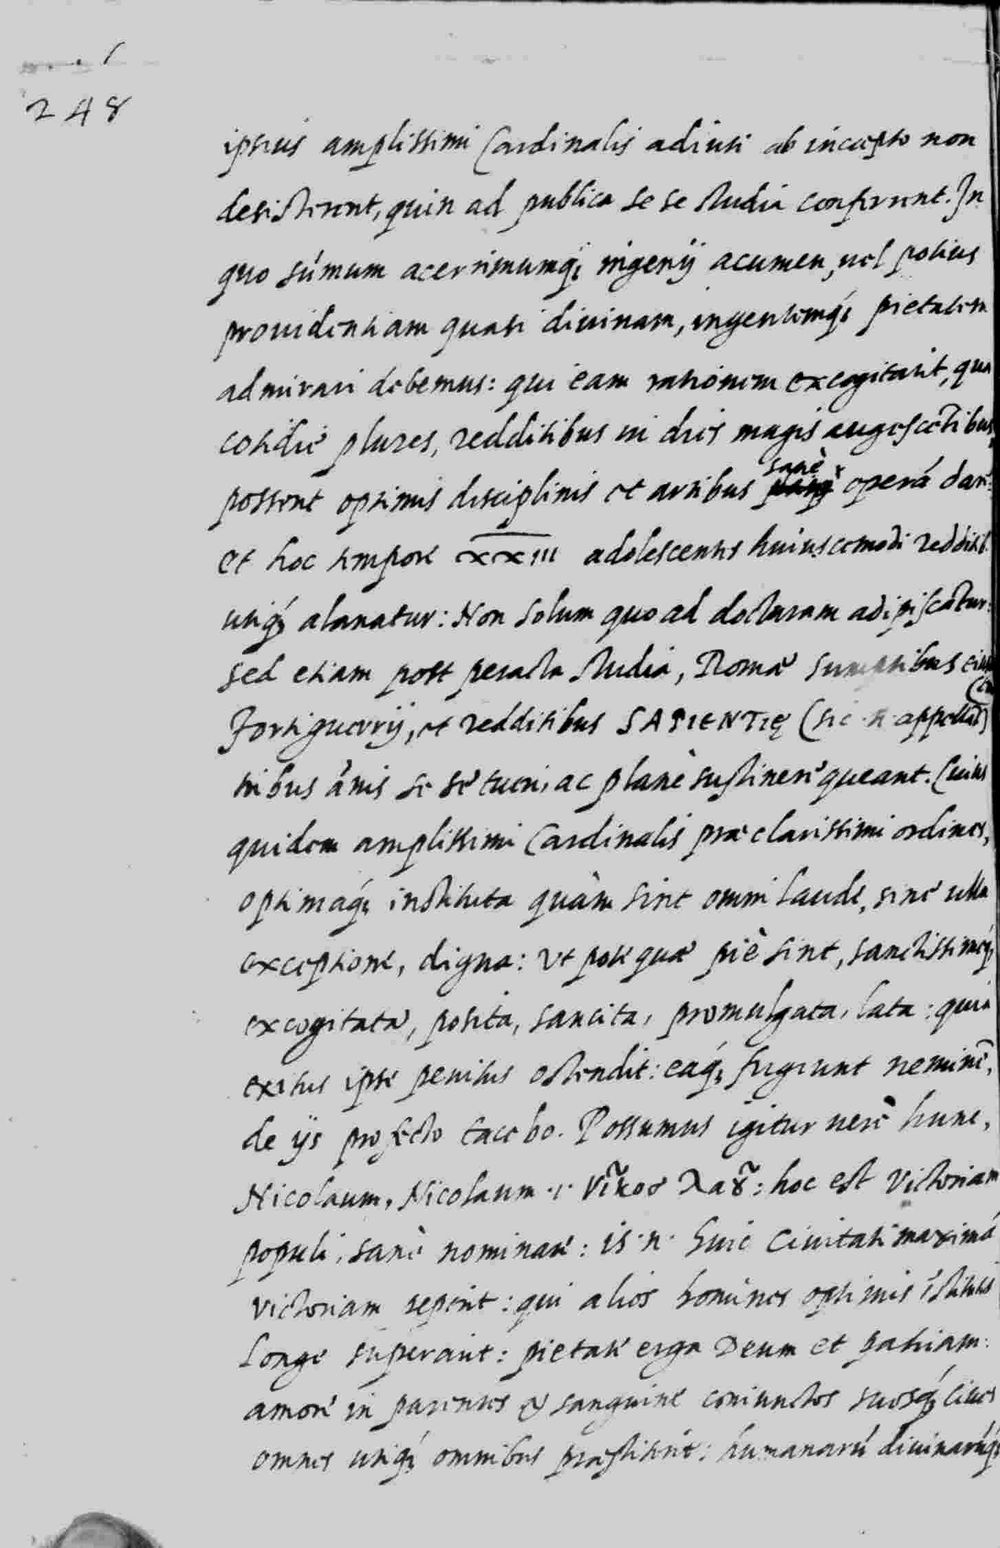 248
ipsius amplissimi Cardinalis adiuti ab incepto non
desisterent, quin ad publica se se studia conferrent. In
quo sũmum acerrimumq; ingenij acumen, uel potius
prouidentiam quasi diuinam, ingentemq́; pietatem
admirari debemus: qui eam rationem excogitarit, qua
cotidiè plures, redditibus in dies magis augescẽtibus,
possent optimis disciplinis et artibus sanè operá dare:
et hoc tempore XXIII adolescentes huiuscemodi reddit.
utiq́; alanatur: Non solum quo ad docturam adipiscãtur:
sed etiam post peracta studia, Romæ sumptibus
Fortiguerrij, et redditibus SAPIENTIĘ (sic .n. appellãt)
tribus ãnis se sé tueri, ac planè sustinere queant. Cuius
quidem amplissimi Cardinalis præclarissimi ordines,
optimaq́; instituta quàm sint omni laude, sine ulla
exceptione, digna: Vt pote quæ piè sint, sanctissimeq́;
excogitata, posita, sancita, promulgata, lata: quia
exitus ipse penitus ostendit: eaq́; fugiunt neminẽ,
de ijs profecto tacebo. Possumus igitur uerè hunc,
Nicolaum, Nicolaum .i. νῖκοσ λαȣ̃: hoc est Victoriam
populi, sanè nominare: is .n. huic Ciuitati maximá
victoriam peperit: qui alios homines optimis ĩstitutis
longe superauit: pietate erga Deum et patriam:
amore in parentes & sanguine coniunctos suosq́; ciues
omnes utiq́; omnibus præstitit: humanarũ diuinarũq́;